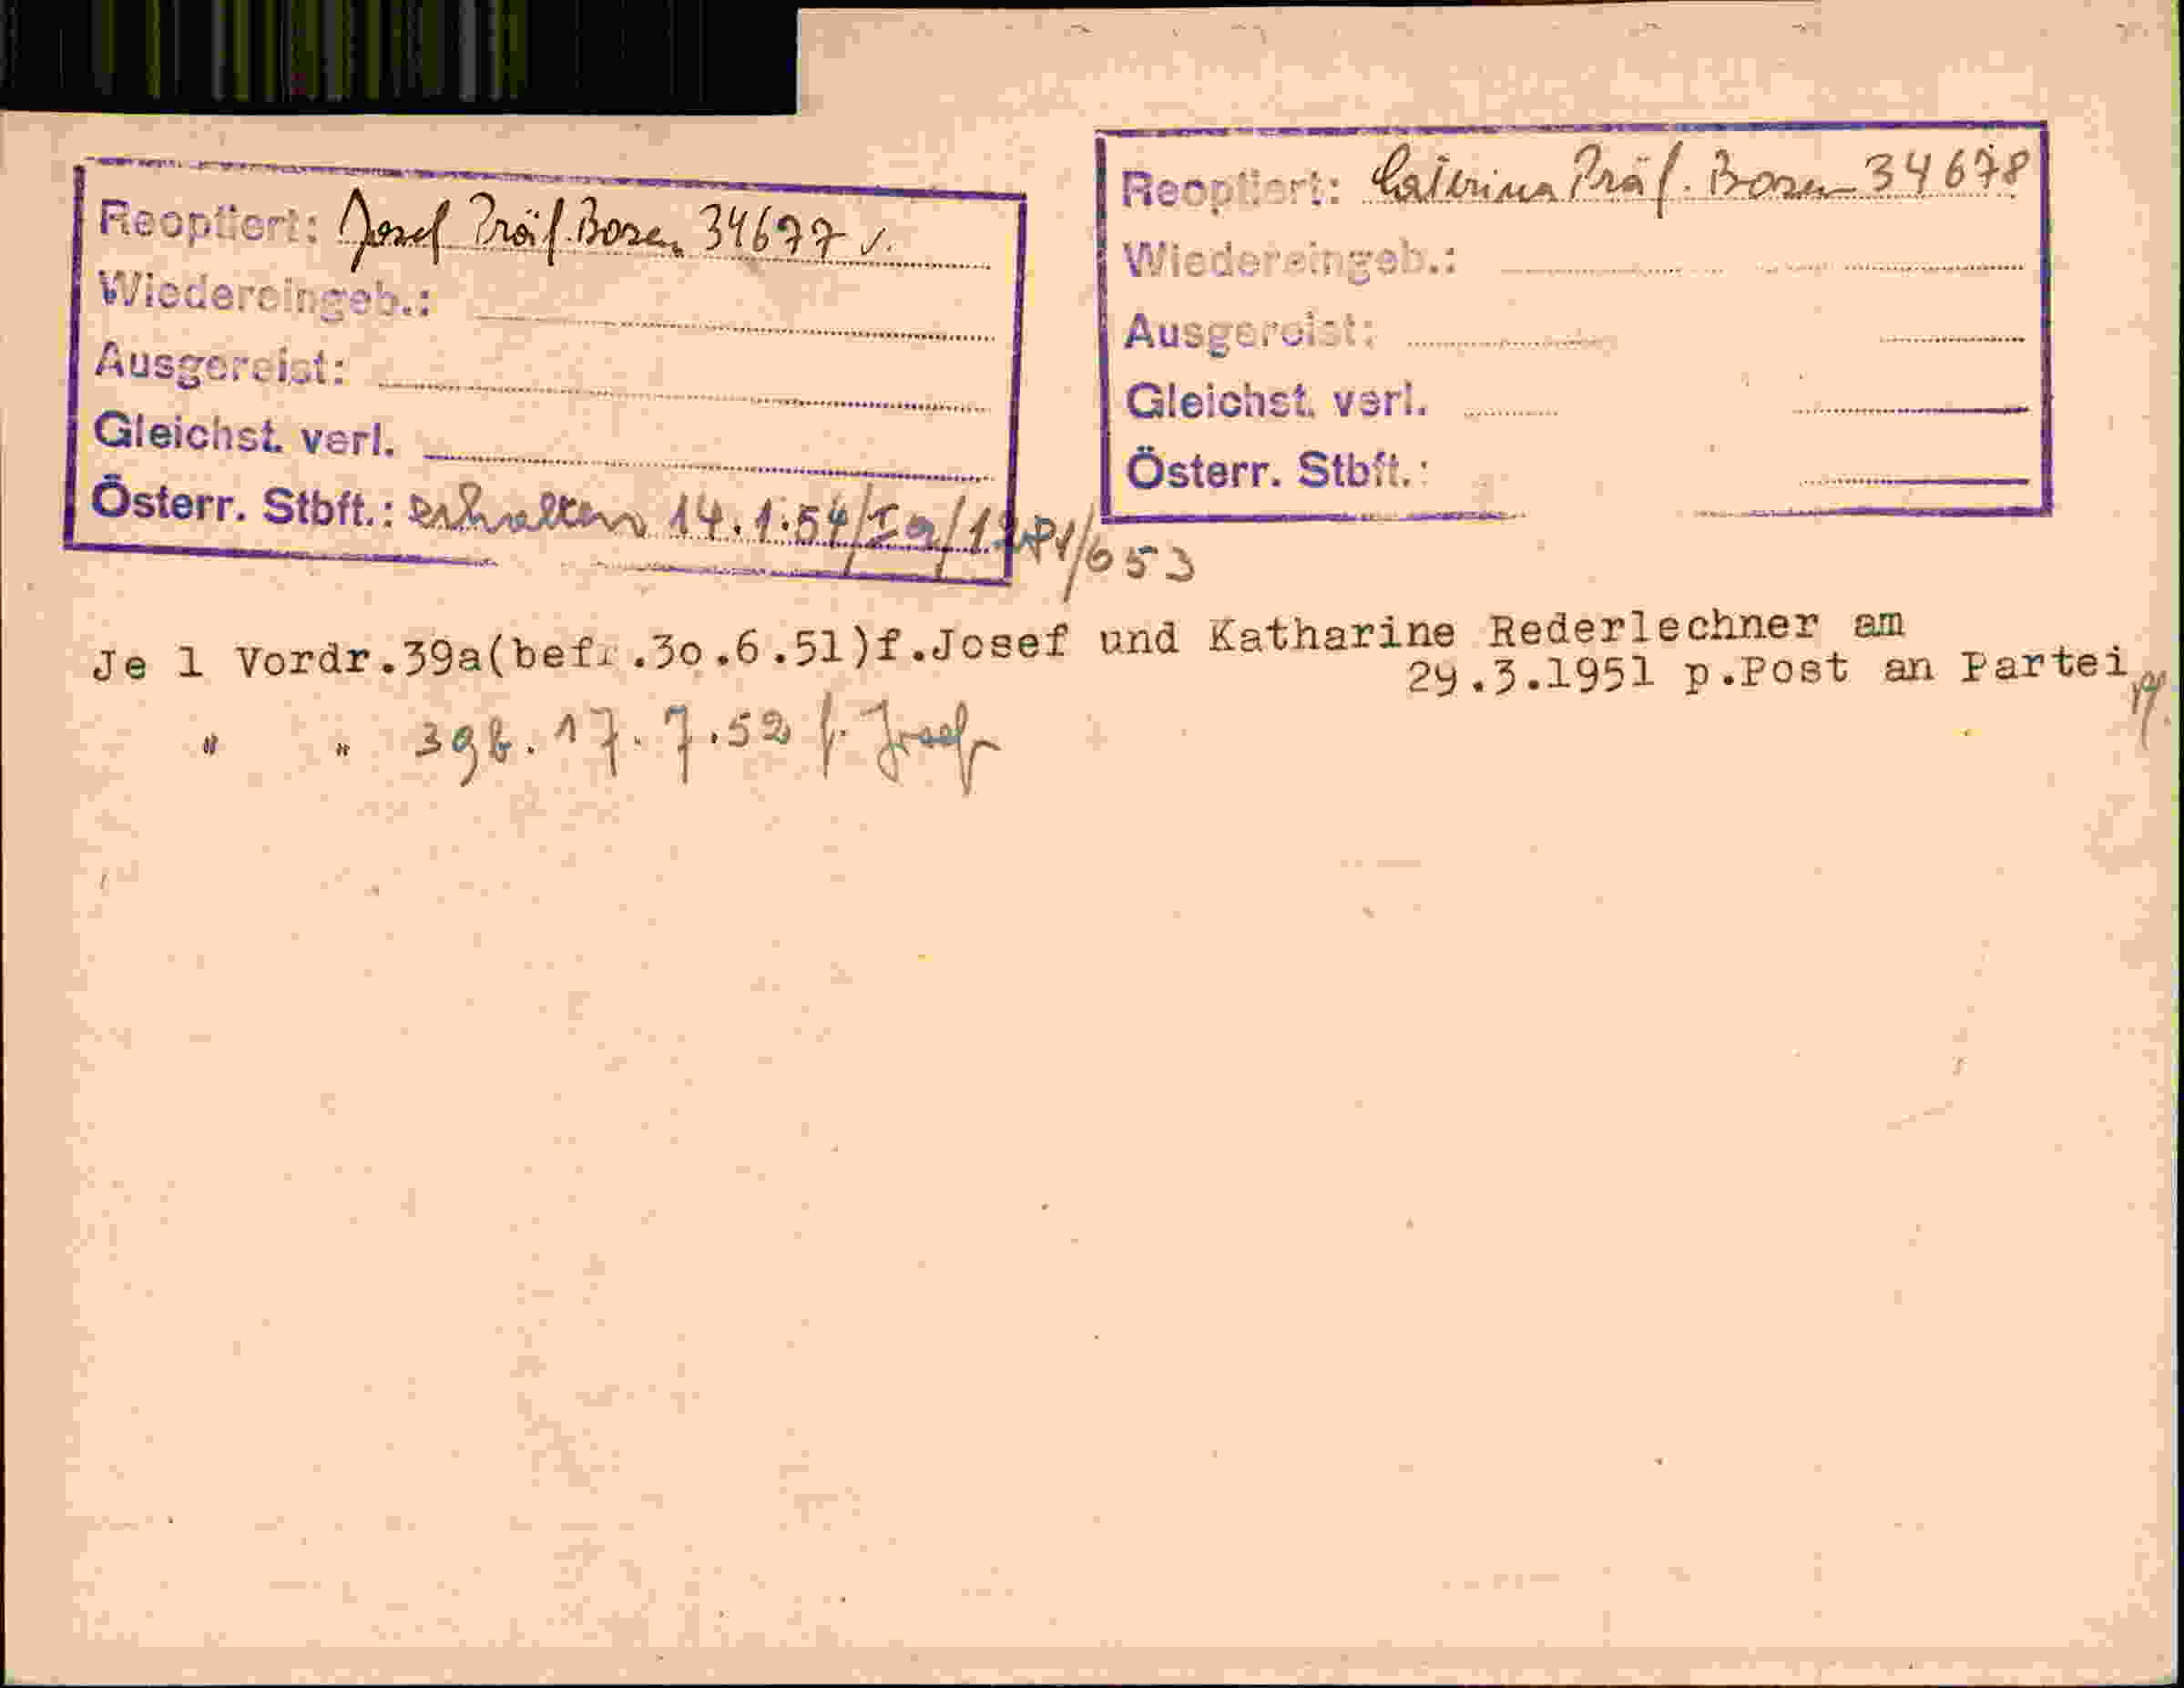 Reoptiert: Josef Präf. Bozen 34677 v.
Wiedereingeb.:
Ausgereist:
Gleichst. verl.
Österr. Stbft.: erhalten 14.1.54/Ia/
Reoptiert: Caterina Präf. Bozen 34678
Wiedereingeb.:
Ausgereist:
Gleichst. verl.
Österr. Stbft.:
Je 1 Vordr.39a(befr.3o.6.51)f.Josef und Katharine Rederlechner am
29.3.1951 p.Post an Partei
" " 39b. 17.7.52 f. Josef